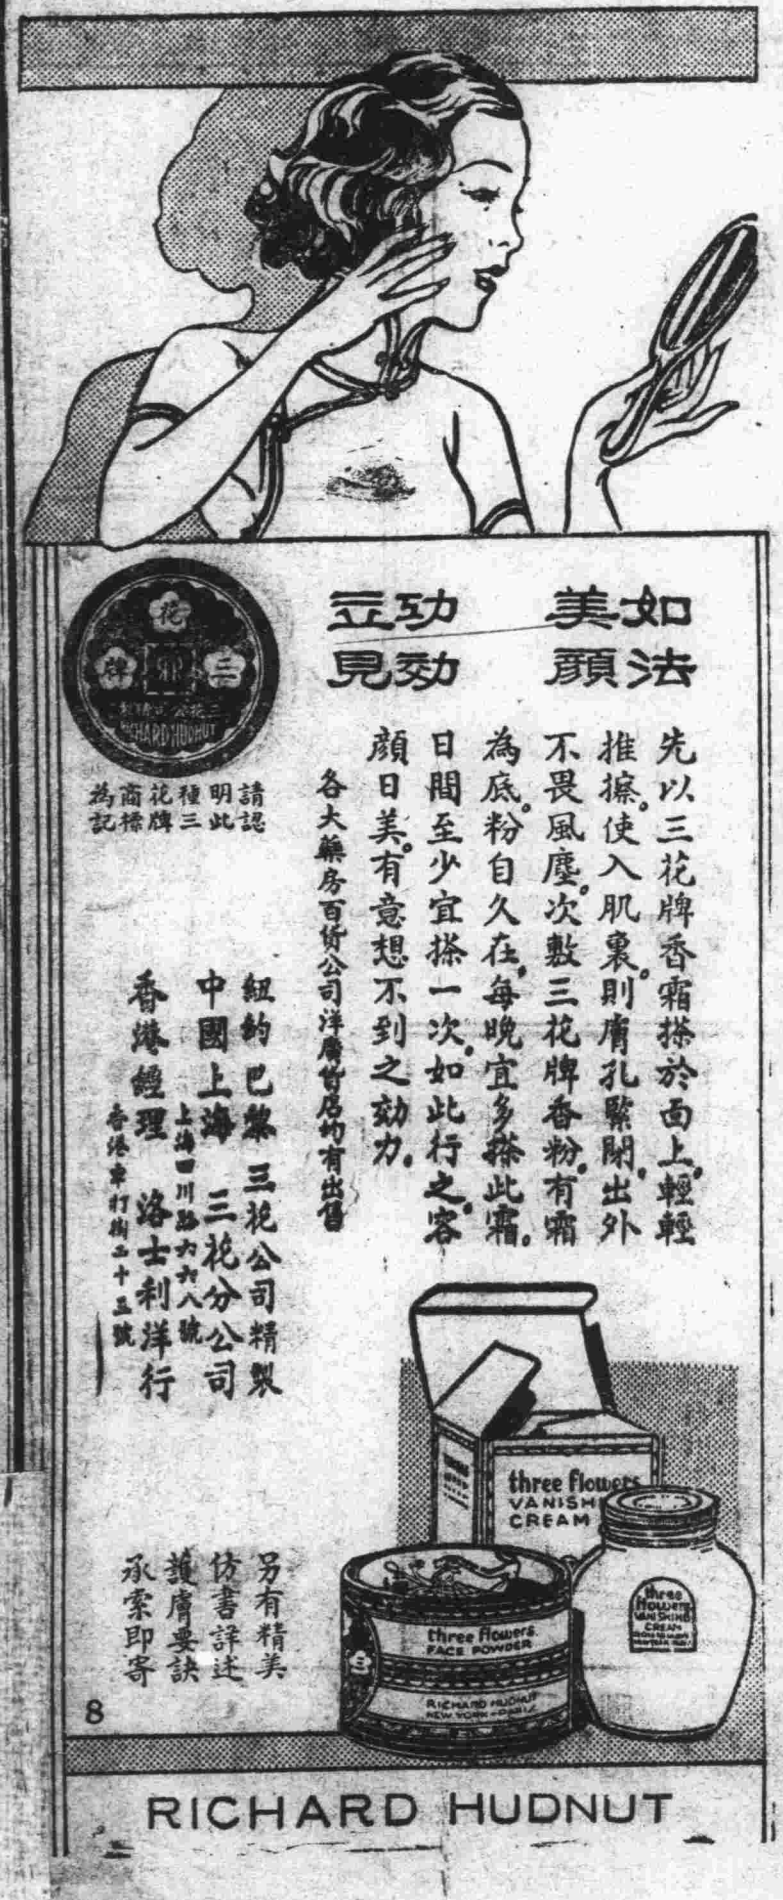 如法
美顏
功効
立見
先以三花牌香霜搽於面上。輕輕
推擦。使入肌裏。則膚孔緊閉。出外
不畏風塵。次敷三花牌香粉。有霜
為底。粉自久在。每晚宜多搽此霜。
日間至少宜搽一次。如此行之。容
顏日美。有意想不到之効力。
各大藥房百貨公司洋廣貨店均有出售
花
三
牌
RICHARD HUDNUT
請認
明此
種三
花牌
商標
為記
紐約巴黎 三花公司精製
中國上海 三花分公司
上海四川路六六八號
香港經理 洛士利洋行
香港車打街二十五號
另有精美
仿書詳述
護膚要訣
承索即寄
8
three flowers
VANISHI
CREAM
three
flowers
VANISHING
CREAM
three flowers
FACE POWDER
RICHARD HUDNUT
NEW YORK - PARIS
RICHARD HUDNUT